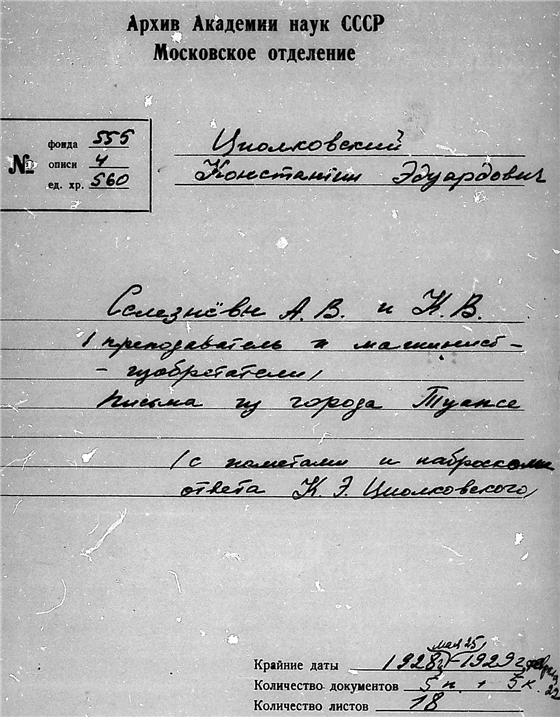 Архив Академии наук СССР
Московское отделение
№
фонда 555
описи 4
ед. хр. 560
Циолковский
Константин Эдуардович
Селезнёвы А. В. и К. В.
(преподаватель и машинист-
- изобретатели)
Письма из города Туапсе
(с пометами и набросками
ответа К. Э. Циолковского)
мая 25
Крайние даты 1928г.-1929г.
Количество документов 5 п. + 5 к.
Количество листов 18